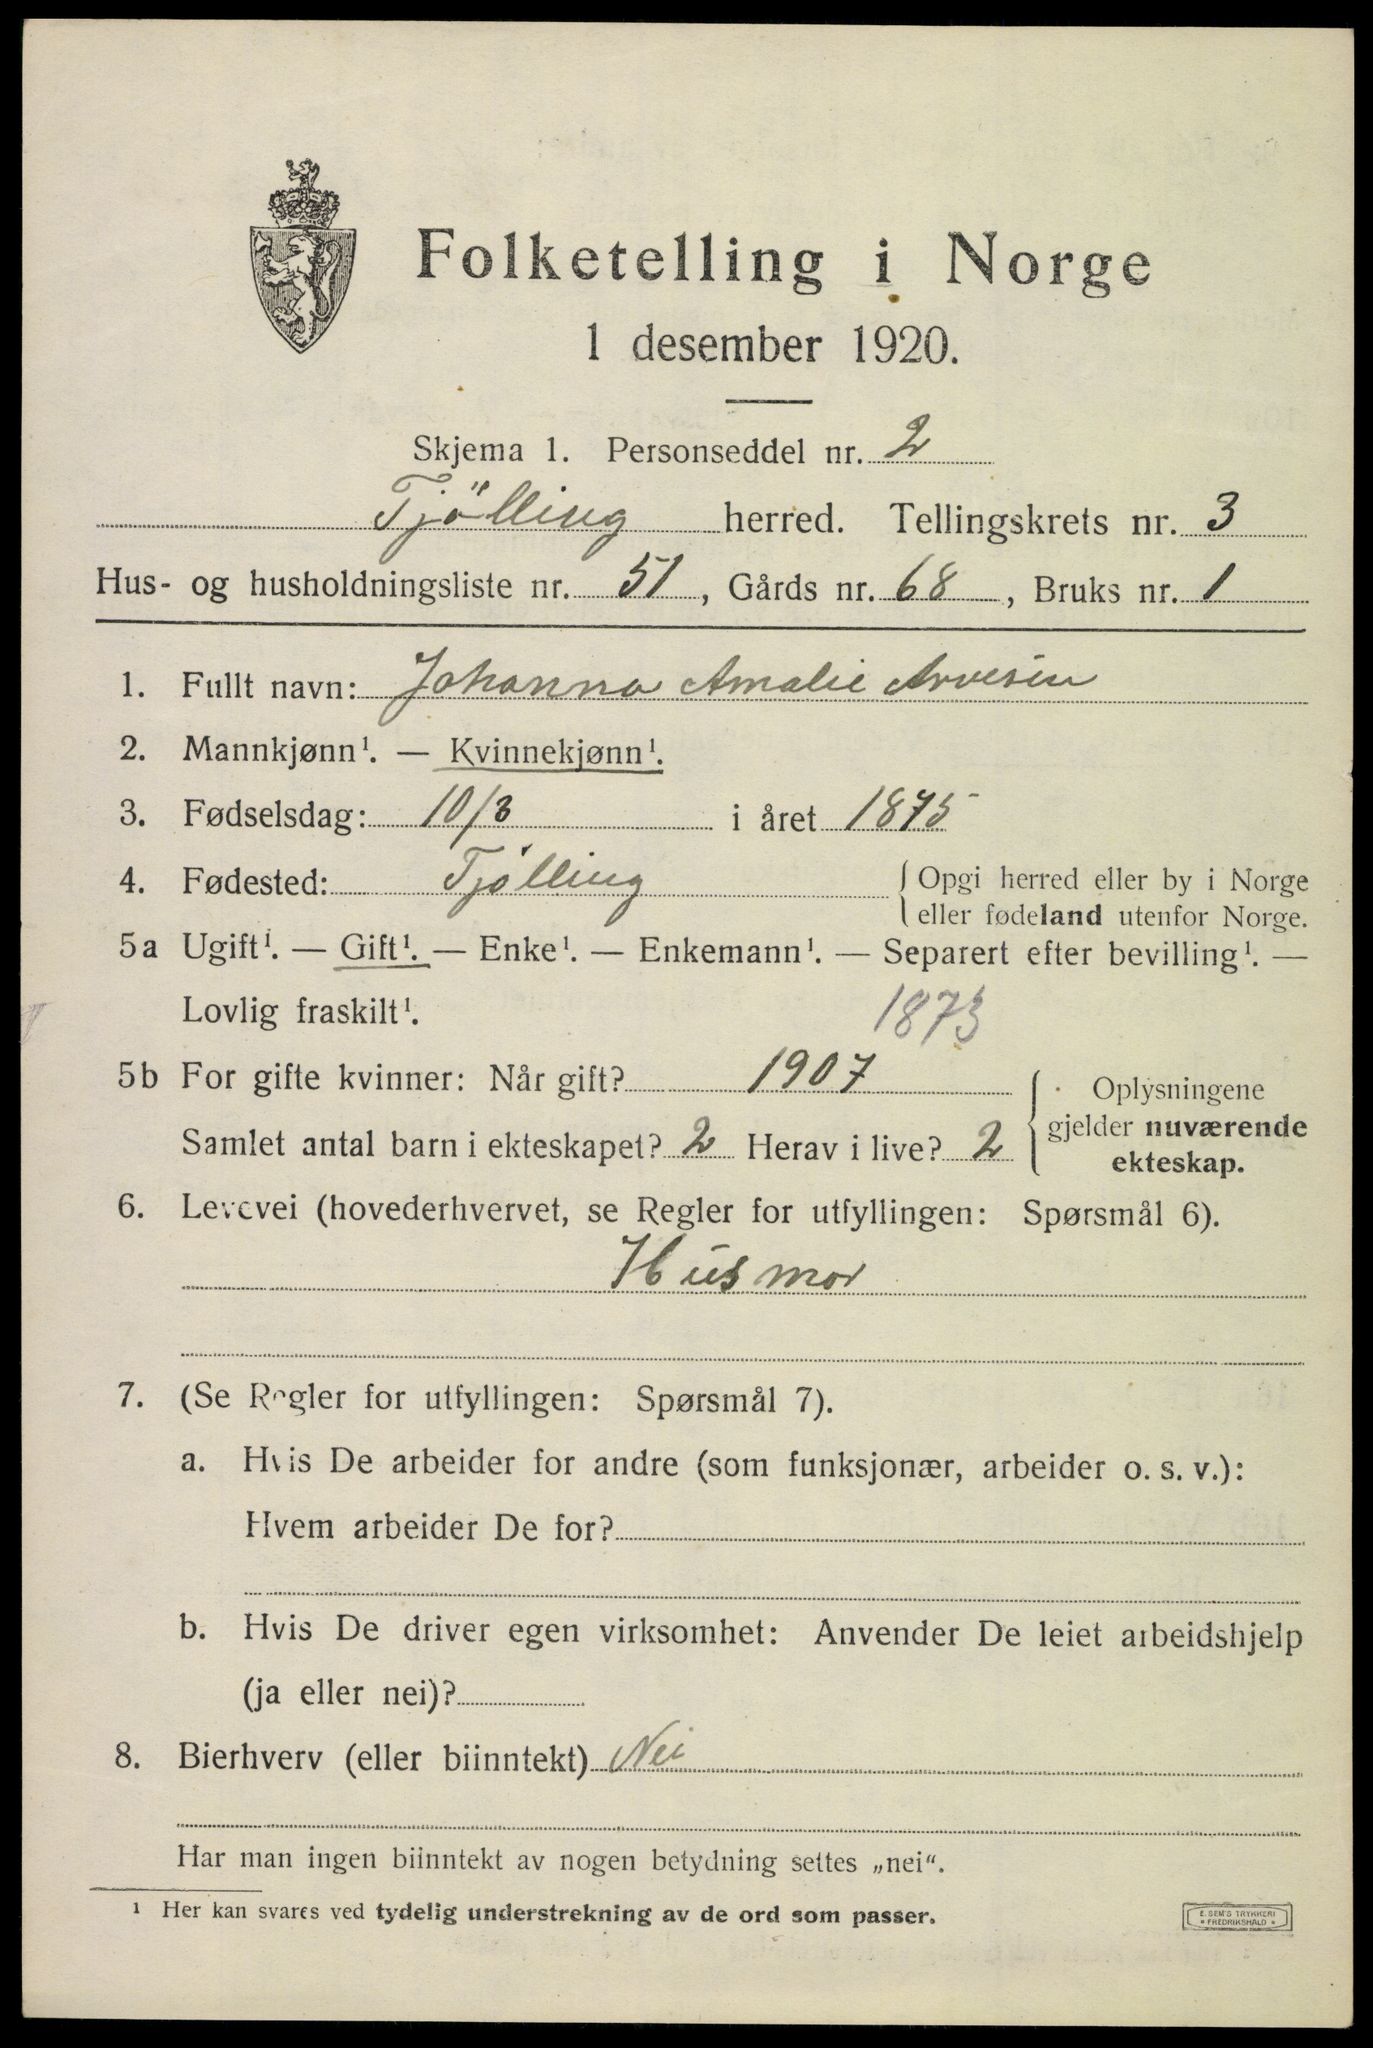 Folketelling i Norge
1 desember 1920.
Skjema 1. Personseddel nr. 2
Tjölling herred. Tellingskrets nr. 3
Hus- og husholdningsliste nr. 51, Gårds nr. 68, Bruks nr. 1
1. Fullt navn: Johanna Amalie Arvesen
2. Mannkjønn¹. — Kvinnekjønn¹.
3. Fødselsdag: 10/3 i året 1875
4. Fødested: Tjølling { Opgi herred eller by i Norge
eller fødeland utenfor Norge.
5a Ugift¹. — Gift¹. — Enke¹. — Enkemann¹. — Separert efter bevilling¹. —
Lovlig fraskilt¹. 1873
5b For gifte kvinner: Når gift? 1907
Samlet antal barn i ekteskapet? 2 Herav i live? 2
{ Oplysningene
gjelder nuværende
ekteskap.
6. Levevei (hovederhvervet, se Regler for utfyllingen: Spørsmål 6).
Husmor
7. (Se Regler for utfyllingen: Spørsmål 7).
a. Hvis De arbeider for andre (som funksjonær, arbeider o. s. v.):
Hvem arbeider De for?
b. Hvis De driver egen virksomhet: Anvender De leiet arbeidshjelp
(ja eller nei)?
8. Bierhverv (eller biinntekt) Nei
Har man ingen biinntekt av nogen betydning settes „nei“.
¹ Her kan svares ved tydelig understrekning av de ord som passer.
E. SEM'S TRYKKERI
* FREDRIKSHALD *